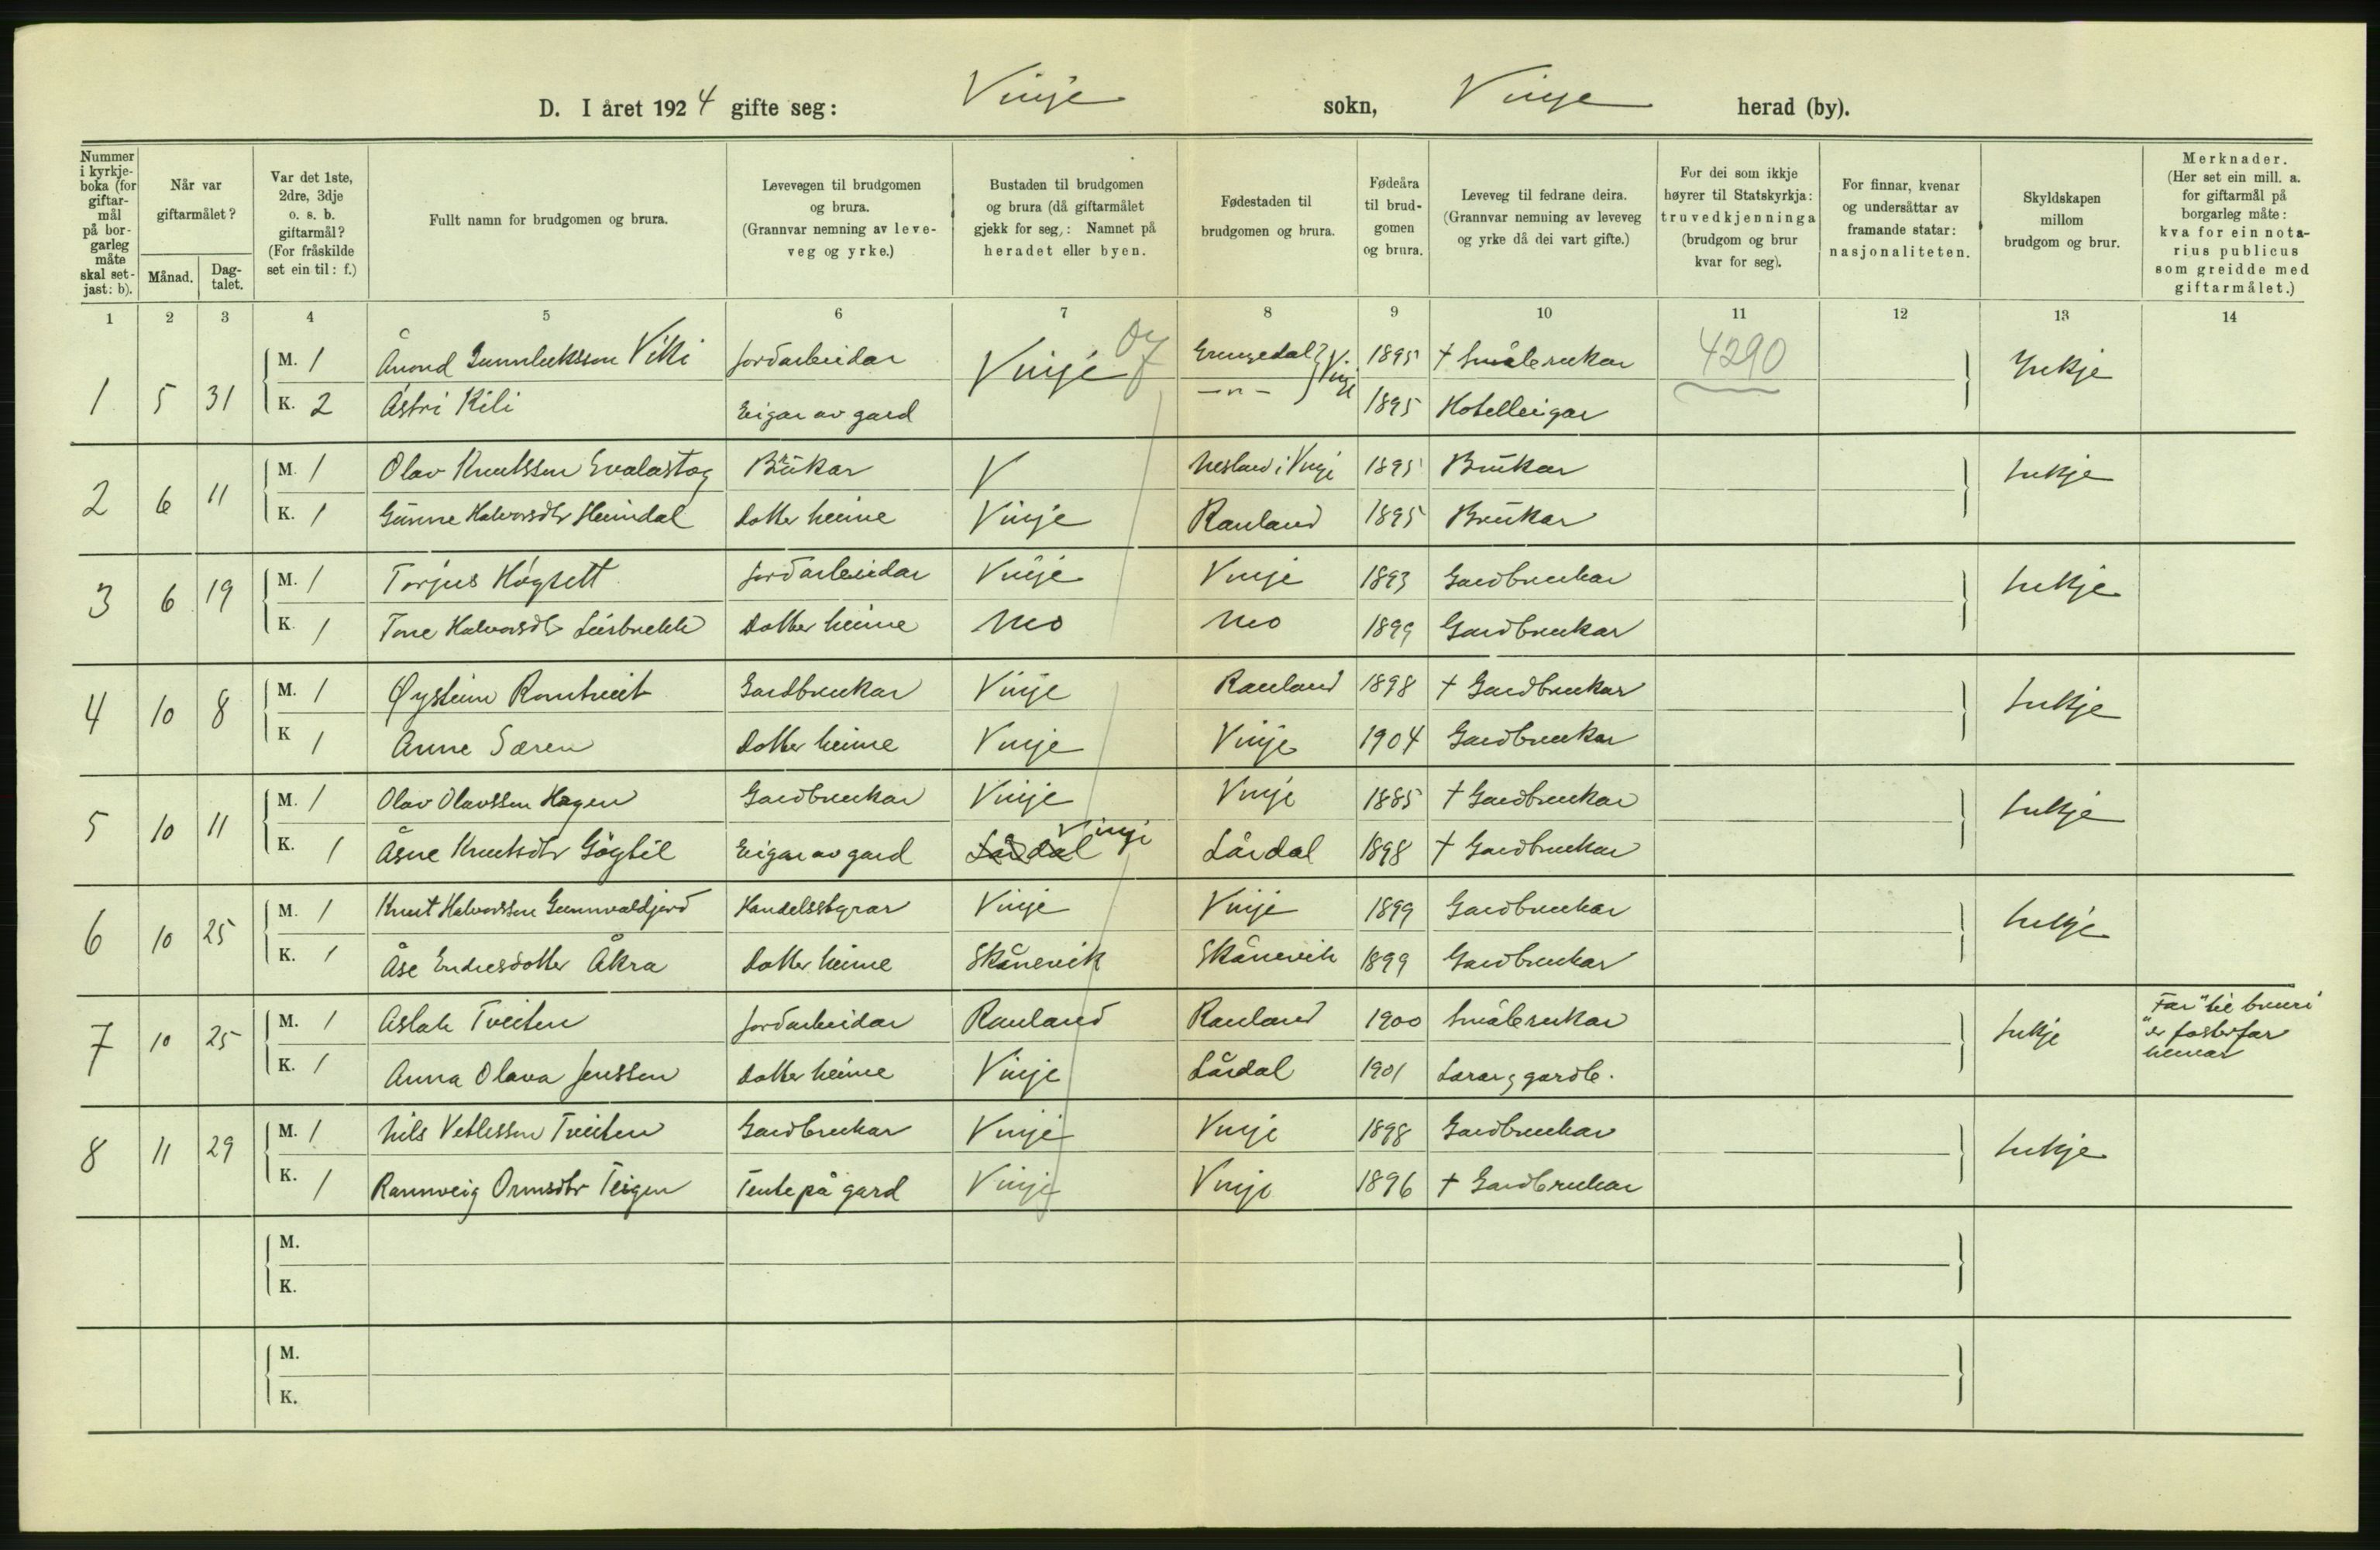 D. I året 1924 gifte seg: Vinje sokn, Vinje herad (by).
Nummer i kyrkje-boka (for giftar-mål på bor-garleg måte skal set-jast: b).
Når var giftarmålet?
Månad.
Dag-talet.
Var det 1ste, 2dre, 3dje o. s. b. giftarmål? (For fråskilde set ein til: f.)
Fullt namn for brudgomen og brura.
Levevegen til brudgomen og brura. (Grannvar nemning av leve-veg og yrke.)
Bustaden til brudgomen og brura (då giftarmålet gjekk for seg,: Namnet på heradet eller byen.
Fødestaden til brudgomen og brura.
Fødeåra til brud-gomen og brura.
Leveveg til fedrane deira. (Grannvar nemning av leveveg og yrke då dei vart gifte.)
For dei som ikkje høyrer til Statskyrkja: truvedkjenninga (brudgom og brur kvar for seg).
For finnar, kvenar og undersåttar av framande statar: nasjonaliteten.
Skyldskapen millom brudgom og brur.
Merknader. (Her set ein mill. a. for giftarmål på borgarleg måte: kva for ein nota-rius publicus som greidde med giftarmålet.)
1 2 3 4 5 6 7 8 9 10 11 12 13 14
1 5 31 M. 1 Ånond Gunnleiksson Viki Jordarbeidar Vinje Grungedal } Vinje 1895 † Småbrukar 4290 Inkje
K. 2 Åstri Kili Eigar av gard —"— 1895 Hotelleigar
2 6 11 M. 1 Olav Knutsson Brukar V Nesland i Vinje 1895 Brukar Inkje
K. 1 Gunne Halvorsdtr Heimdal Dotter heime Vinje Rauland 1895 Brukar
3 6 19 M. 1 Torjus Høgsett Jordarbeidar Vinje Vinje 1893 Gardbrukar Inkje
K. 1 Tone Halvorsdtr Dotter heime Mo Mo 1899 Gardbrukar
4 10 8 M. 1 Øystein Romtveit Gardbrukar Vinje Rauland 1898 † Gardbrukar Inkje
K 1 Anne Særen Dotter heime Vinje Vinje 1904 Gardbrukar
5 10 11 M. 1 Olav Olavsson Hagen Gardbrukar Vinje Vinje 1885 † Gardbrukar Inkje
K. 1 Åsne Knutsdtr Eigar av gard Lårdal Vinje Lårdal 1898 † Gardbrukar
6 10 25 M. 1 Knut Halvorsson Gunnvaldjord Handelsstyrar Vinje Vinje 1899 Gardbrukar Inkje
K. 1 Åse Endresdotter Åkra Dotter heime Skånevik Skånevik 1899 Gardbrukar
7 10 25 M. 1 Aslak Tveiten Jordarbeidar Rauland Rauland 1900 Småbrukar Inkje Far" til bruri "er fosterfar hennar
K. 1 Anna Olava Jenssen Dotter heime Vinje Lårdal 1901 Lærar, gardb.
8 11 29 M. 1 Nils Vetlesson Tveiten Gardbrukar Vinje Vinje 1898 Gardbrukar Inkje
K. 1 Rannveig Ormsdtr Teigen Tente på gard Vinje Vinje 1896 † Gardbrukar
M.
K.
M.
K.